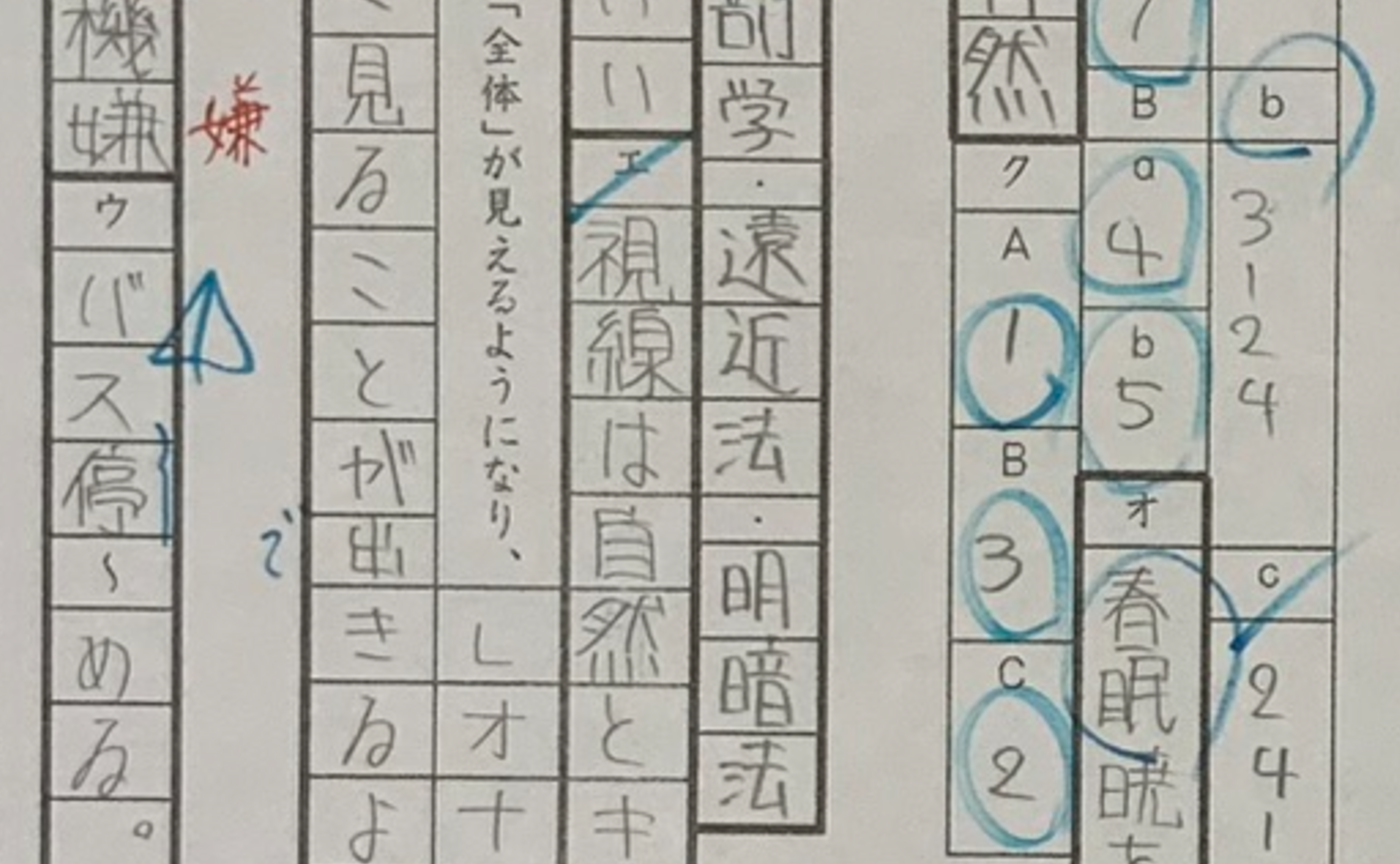 b
3124
c
241
7
B
a
4
b
5
オ
春眠暁
然
ク
A
1
B
3
C
2
剖学・遠近法・明暗法
い
エ
視線は自然とキ
「全体」が見えるようになり、
」オナ
見ることが出きるよ
で
嫌
機嫌
ウ
バス停〜める。